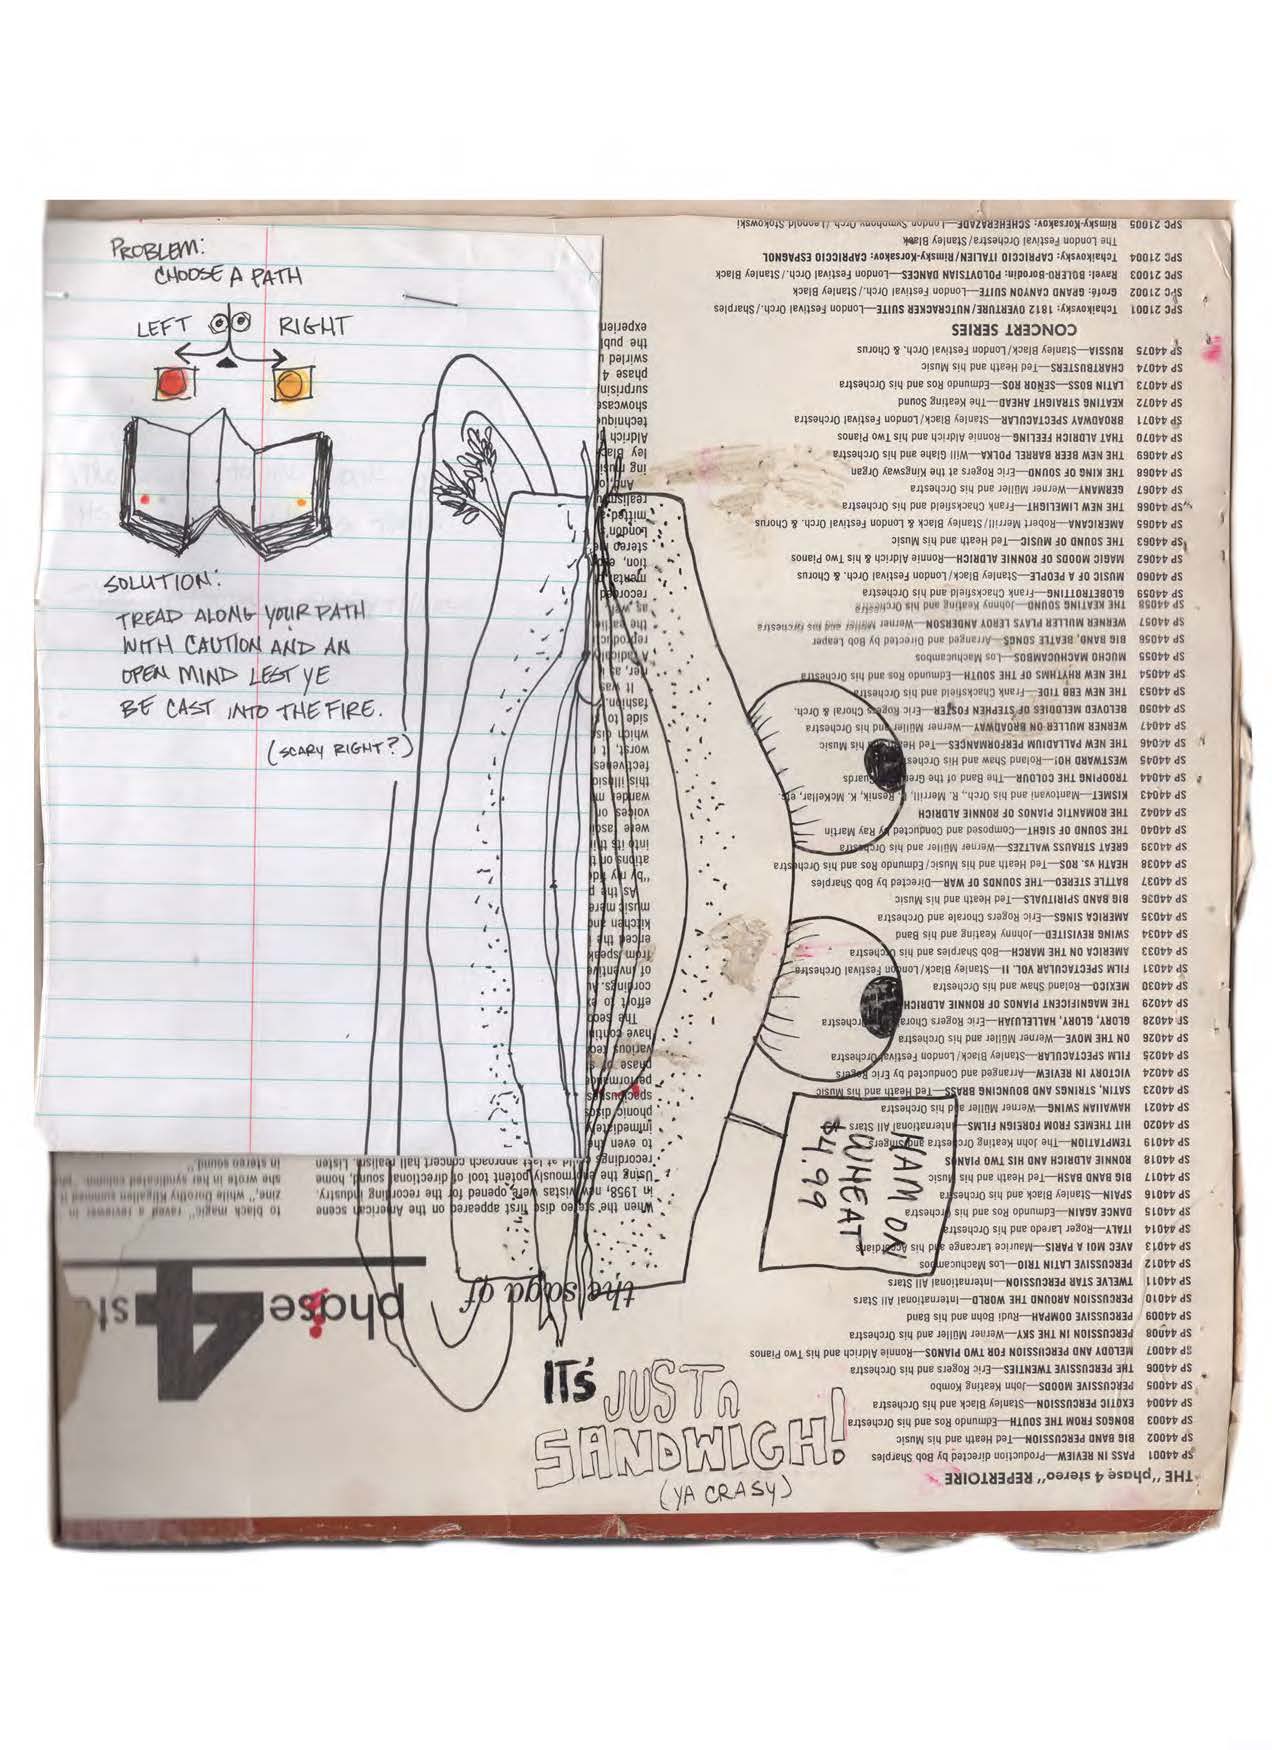 PROBLEM:
CHOOSE A PATH
LEFT RIGHT
SOLUTION:
TREAD ALONG YOUR PATH
WITH CAUTION AND AN
OPEN MIND LEST YE
BE CAST INTO THE FIRE.
(SCARY RIGHT?)
HAM ON
WHEAT
$4.99
IT'S JUST A
SANDWICH!
(YA CRASY)
the saga of
phase 4 st
When the stereo disc first appeared on the American scene
in 1958, new vistas were opened for the recording industry.
Using the enormously potent tool of directional sound, home
recordings could at last approach concert hall realism. Listen
to even the
immediately
phonic discs
spaciousness
performance
phase of
various rec
have contin
The seco
effort to ex
cordings.
of inventive
from speak
erced the
kitchen and
music mere
As the p
"by my side
ations on t
into its thi
were
voices or
wander m
this illusi
fectivenes
worst, it
which
side to
fashion.
It was
rier, as
A radically
the earlie
as, well
recorded
mental
tion,
stereo
London's
mitted
realism
And, of
ing music
ley Black
Aldrich
technique
showcase
surprisin
phase 4
swirled u
the publ
experien
to black magic," raved a reviewer in
zine," while Dorothy Kilgallen summed it
she wrote in her syndicated column, "ph
in stereo sound."
THE "phase 4 stereo" REPERTOIRE
SP 44001 PASS IN REVIEW—Production directed by Bob Sharples
SP 44002 BIG BAND PERCUSSION—Ted Heath and his Music
SP 44003 BONGOS FROM THE SOUTH—Edmundo Ros and his Orchestra
SP 44004 EXOTIC PERCUSSION—Stanley Black and his Orchestra
SP 44005 PERCUSSIVE MOODS—John Keating Kombo
SP 44006 THE PERCUSSIVE TWENTIES—Eric Rogers and his Orchestra
SP 44007 MELODY AND PERCUSSION FOR TWO PIANOS—Ronnie Aldrich and his Two Pianos
SP 44008 PERCUSSION IN THE SKY—Werner Müller and his Orchestra
SP 44009 PERCUSSIVE OOMPAH—Rudi Bohn and his Band
SP 44010 PERCUSSION AROUND THE WORLD—International All Stars
SP 44011 TWELVE STAR PERCUSSION—International All Stars
SP 44012 PERCUSSIVE LATIN TRIO—Los Machucambos
SP 44013 AVEC MOI A PARIS—Maurice Larcange and his Accordians
SP 44014 ITALY—Roger Laredo and his Orchestra
SP 44015 DANCE AGAIN—Edmundo Ros and his Orchestra
SP 44016 SPAIN—Stanley Black and his Orchestra
SP 44017 BIG BAND BASH—Ted Heath and his Music
SP 44018 RONNIE ALDRICH AND HIS TWO PIANOS
SP 44019 TEMPTATION—The John Keating Orchestra and Singers
SP 44020 HIT THEMES FROM FOREIGN FILMS—International All Stars
SP 44021 HAWAIIAN SWING—Werner Müller and his Orchestra
SP 44023 SATIN, STRINGS AND BOUNCING BRASS—Ted Heath and his Music
SP 44024 VICTORY IN REVIEW—Arranged and Conducted by Eric Rogers
SP 44025 FILM SPECTACULAR—Stanley Black/London Festival Orchestra
SP 44026 ON THE MOVE—Werner Müller and his Orchestra
SP 44028 GLORY, GLORY, HALLELUJAH—Eric Rogers Chorale Orchestra
SP 44029 THE MAGNIFICENT PIANOS OF RONNIE ALDRICH
SP 44030 MEXICO—Roland Shaw and his Orchestra
SP 44031 FILM SPECTACULAR VOL. II—Stanley Black/London Festival Orchestra
SP 44033 AMERICA ON THE MARCH—Bob Sharples and his Orchestra
SP 44034 SWING REVISITED—Johnny Keating and his Band
SP 44035 AMERICA SINGS—Eric Rogers Chorale and his Orchestra
SP 44036 BIG BAND SPIRITUALS—Ted Heath and his Music
SP 44037 BATTLE STEREO—THE SOUNDS OF WAR—Directed by Bob Sharples
SP 44038 HEATH vs. ROS—Ted Heath and his Music/Edmundo Ros and his Orchestra
SP 44039 GREAT STRAUSS WALTZES—Werner Müller and his Orchestra
SP 44040 THE SOUND OF SIGHT—Composed and Conducted by Ray Martin
SP 44042 THE ROMANTIC PIANOS OF RONNIE ALDRICH
SP 44043 KISMET—Mantovani and his Orch., R. Merrill, R. Resnik, K. McKellar, etc.
SP 44044 TROOPING THE COLOUR—The Band of the Grenadier Guards
SP 44045 WESTWARD HO!—Roland Shaw and his Orchestra
SP 44046 THE NEW PALLADIUM PERFORMANCES—Ted Heath and his Music
SP 44047 WERNER MULLER ON BROADWAY—Werner Müller and his Orchestra
SP 44050 BELOVED MELODIES OF STEPHEN FOSTER—Eric Rogers Choral & Orch.
SP 44053 THE NEW EBB TIDE—Frank Chacksfield and his Orchestra
SP 44054 THE NEW RHYTHMS OF THE SOUTH—Edmundo Ros and his Orchestra
SP 44055 MUCHO MACHUCAMBOS—Los Machucambos
SP 44056 BIG BAND, BEATLE SONGS—Arranged and Directed by Bob Leaper
SP 44057 WERNER MULLER PLAYS LEROY ANDERSON—Werner Müller and his Orchestra
SP 44058 THE KEATING SOUND—Johnny Keating and his Orchestra
SP 44059 GLOBETROTTING—Frank Chacksfield and his Orchestra
SP 44060 MUSIC OF A PEOPLE—Stanley Black/London Festival Orch. & Chorus
SP 44062 MAGIC MOODS OF RONNIE ALDRICH—Ronnie Aldrich & his Two Pianos
SP 44063 THE SOUND OF MUSIC—Ted Heath and his Music
SP 44065 AMERICANA—Robert Merrill/Stanley Black & London Festival Orch. & Chorus
SP 44066 THE NEW LIMELIGHT—Frank Chacksfield and his Orchestra
SP 44067 GERMANY—Werner Müller and his Orchestra
SP 44068 THE KING OF SOUND—Eric Rogers at the Kingsway Organ
SP 44069 THE NEW BEER BARREL POLKA—Will Glahe and his Orchestra
SP 44070 THAT ALDRICH FEELING—Ronnie Aldrich and his Two Pianos
SP 44071 BROADWAY SPECTACULAR—Stanley Black/London Festival Orchestra
SP 44072 KEATING STRAIGHT AHEAD—The Keating Sound
SP 44073 LATIN BOSS—SEÑOR ROS—Edmundo Ros and his Orchestra
SP 44074 CHARTBUSTERS—Ted Heath and his Music
SP 44075 RUSSIA—Stanley Black/London Festival Orch. & Chorus
CONCERT SERIES
SPC 21001 Tchaikovsky: 1812 OVERTURE/NUTCRACKER SUITE—London Festival Orch./Sharples
SPC 21002 Grofé: GRAND CANYON SUITE—London Festival Orch./Stanley Black
SPC 21003 Ravel: BOLERO-Borodin: POLOVTSIAN DANCES—London Festival Orch./Stanley Black
SPC 21004 Tchaikovsky: CAPRICCIO ITALIEN/Rimsky-Korsakov: CAPRICCIO ESPAGNOL
The London Festival Orchestra/Stanley Black
SPC 21005 Rimsky-Korsakov: SCHEHERAZADE—London Symphony Orch./Leopold Stokowski